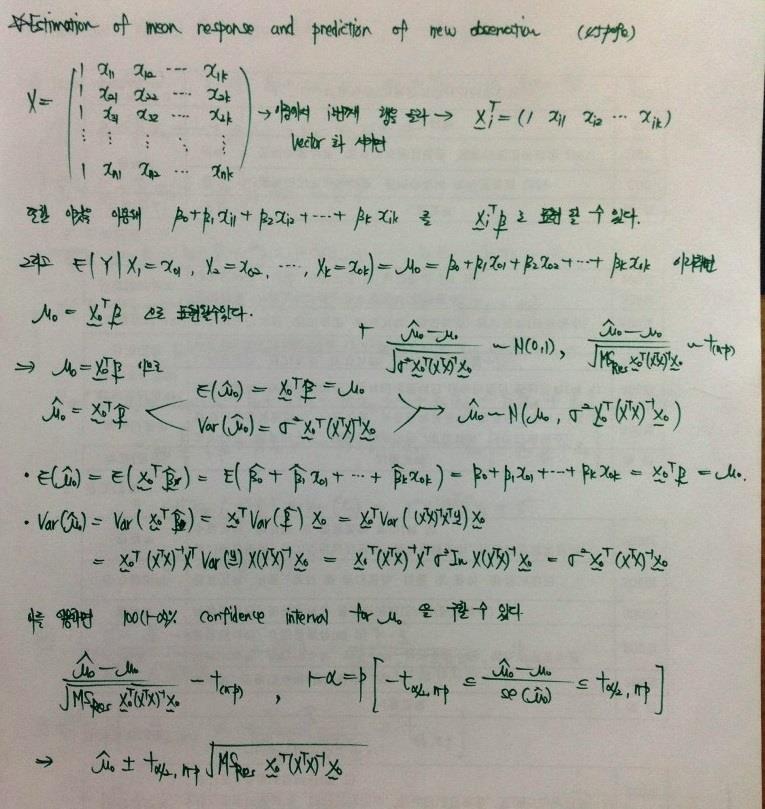 *Estimation of mean response and prediction of new observation (45page)
X = ( 1 x₁₁ x₁₂ ⋯ x₁ₖ
1 x₂₁ x₂₂ ⋯ x₂ₖ
1 x₃₁ x₃₂ ⋯ x₃ₖ → 이중에서 i번째 행을 → xᵢᵀ = (1 xᵢ₁ xᵢ₂ ⋯ xᵢₖ)
⋮ ⋮ ⋮ ⋱ ⋮ vector 라
1 xₙ₁ xₙ₂ ⋯ xₙₖ )
또한 이용해 β₀+β₁xᵢ₁+β₂xᵢ₂+⋯+βₖxᵢₖ 를 xᵢᵀβ 로 표현 할 수 있다.
그리고 E(Y|X₁=x₀₁, X₂=x₀₂, ⋯, Xₖ=x₀ₖ) = μ₀ = β₀+β₁x₀₁+β₂x₀₂+⋯+βₖx₀ₖ 이라하면
μ₀ = x₀ᵀβ 으로 표현할수있다.
+ (μ̂₀-μ₀)/√(σ²x₀ᵀ(XᵀX)⁻¹x₀) ~ N(0,1), (μ̂₀-μ₀)/√(MS_Res x₀ᵀ(XᵀX)⁻¹x₀) ~ t(n-p)
⇒ μ₀ = x₀ᵀβ 이므로
μ̂₀ = x₀ᵀβ̂ < E(μ̂₀) = x₀ᵀβ = μ₀
Var(μ̂₀) = σ²x₀ᵀ(XᵀX)⁻¹x₀ > → μ̂₀ ~ N(μ₀, σ²x₀ᵀ(XᵀX)⁻¹x₀)
· E(μ̂₀) = E(x₀ᵀβ̂) = E(β̂₀ + β̂₁x₀₁ + ⋯ + β̂ₖx₀ₖ) = β₀+β₁x₀₁+⋯+βₖx₀ₖ = x₀ᵀβ = μ₀.
· Var(μ̂₀) = Var(x₀ᵀβ̂) = x₀ᵀVar(β̂)x₀ = x₀ᵀVar((XᵀX)⁻¹Xᵀy)x₀
= x₀ᵀ(XᵀX)⁻¹Xᵀ Var(y) X(XᵀX)⁻¹x₀ = x₀ᵀ(XᵀX)⁻¹Xᵀσ²In X(XᵀX)⁻¹x₀ = σ²x₀ᵀ(XᵀX)⁻¹x₀
이를 이용하면 100(1-α)% confidence interval for μ₀ 을 구할 수 있다
(μ̂₀-μ₀)/√(MS_Res x₀ᵀ(XᵀX)⁻¹x₀) ~ t(n-p) , 1-α = P[-t_α/2, n-p ≤ (μ̂₀-μ₀)/se(μ̂₀) ≤ t_α/2, n-p]
⇒ μ̂₀ ± t_α/2, n-p √(MS_Res x₀ᵀ(XᵀX)⁻¹x₀)